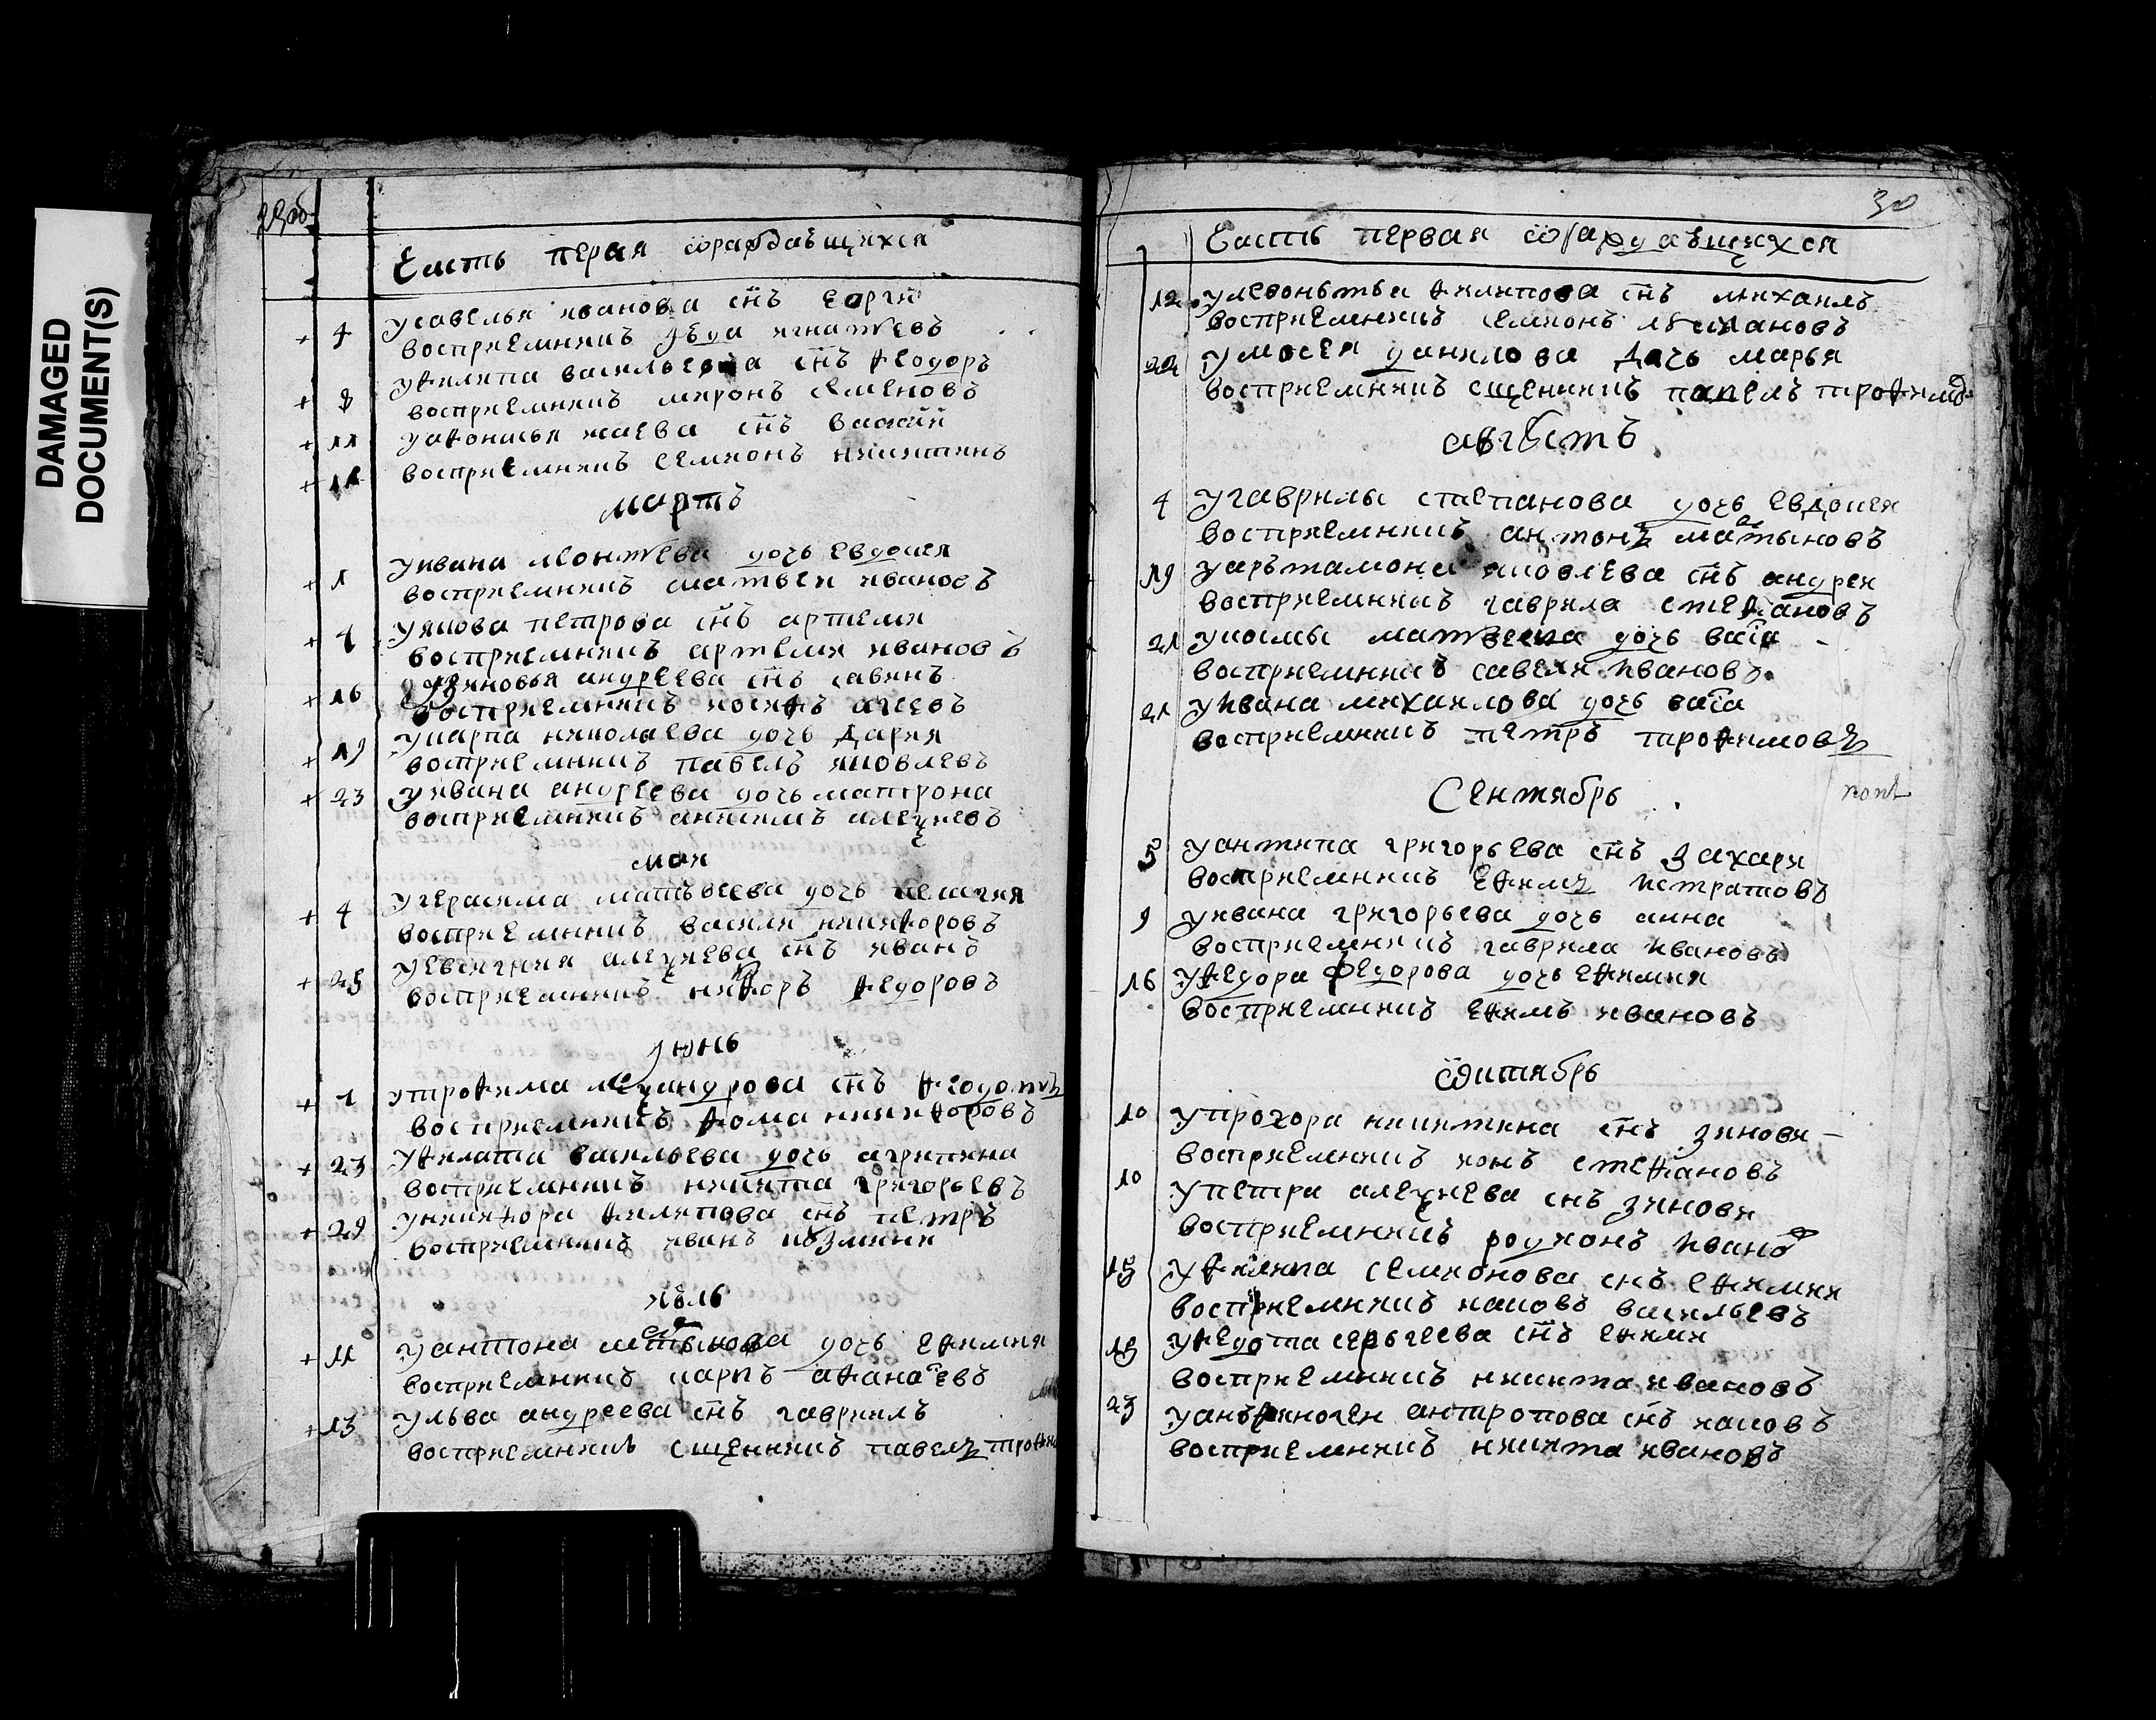 DAMAGED
DOCUMENT(S)
29об
Часть перая ѡраждаѣщихся
4 у савелья иванова снъ еѡргий
восприемникъ ѕѣда игнатиевъ
8 у филипа васильева снъ феодоръ
восприемникъ миронъ семеновъ
11 у афонасья исаева снъ василий
11 восприемникъ семионъ никитинъ
мартъ
1 у ивана леонтиева дочь евдокея
восприемникъ матвеи ивановъ
4 у якова петрова снъ артемий
восприемникъ артемий ивановъ
16 у зиновья андреева снъ савинъ
восприемникъ иосифъ агеевъ
19 у карпа николаева дочь дария
восприемникъ павелъ яковлевъ
23 у ивана андреева дочь матрона
восприемникъ анисимъ алеѯиевъ
маи
4 у герасима матьвеева дочь пелагия
восприемникъ василий никифоровъ
25 у евсигния алеѯиева снъ иванъ
восприемникъ никифоръ федоровъ
июнь
1 у трофима леѯандрова снъ феодотъ
восприемникъ фома никифоровъ
23 у филата васильева дочь агрипина
восприемникъ никита григорьевъ
29 у никифора филипова снъ петръ
восприемникъ иванъ кѹзминъ
июль
11 у антона дочь ефимия
восприемникъ карпъ афанасевъ
13 у льва андреева снъ гавриилъ
восприемникъ сщенникъ павелъ
30
Часть первая ѡраждаѣщихся
12 у левоньтья филипова снъ михаилъ
восприемникъ семионъ
22 у мосея данилова дачь марья
восприемникъ сщеникъ павелъ трофимов
августъ
4 у гаврилы степанова дочь евдокея
восприемникъ антонъ
19 у арътамона яковлева снъ андреи
восприемникъ гаврила стефановъ
21 у космы матвеева дочь васа
восприемникъ савелий ивановъ
21 у ивана михаилова дочь васа
восприемникъ петръ трофимовъ
Сентябрь
5 у антипа григорьева снъ захари
восприемникъ ефимъ истратовъ
9 у ивана григорьева дочь анна
восприемникъ гаврила ивановъ
16 у федора федорова дочь ефимия
восприемникъ ефимъ ивановъ
ѡктябрь
10 у прохора никитина снъ зинови
восприемникъ ионъ стефановъ
10 у петра алеѯиева снъ зинови
восприемникъ родионъ ивано в
15 у филипа семионова снъ ефимии
восприемникъ иаковъ васильевъ
18 у федота серьгеева снъ ефими
восприемникъ никита ивановъ
23 у анъфиноген антропова снъ иаковъ
восприемникъ никита ивановъ